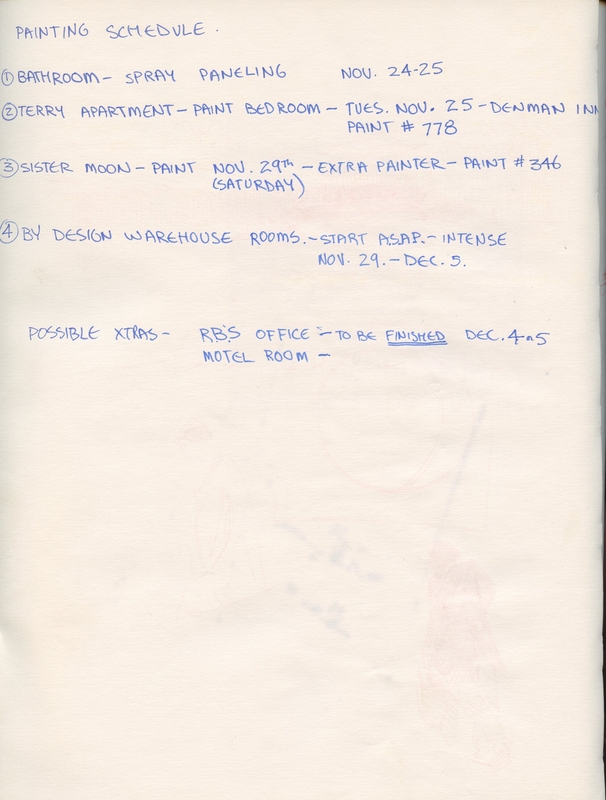 PAINTING SCHEDULE.
① BATHROOM - SPRAY PANELING NOV. 24-25
② TERRY APARTMENT - PAINT BEDROOM - TUES. NOV. 25 - DENMAN INN
PAINT # 778
③ SISTER MOON - PAINT NOV. 29th - EXTRA PAINTER - PAINT # 346
(SATURDAY)
④ BY DESIGN WAREHOUSE ROOMS. - START A.S.A.P. - INTENSE
NOV. 29. - DEC. 5.
POSSIBLE XTRAS - RB'S OFFICE - TO BE FINISHED DEC. 4 or 5
MOTEL ROOM -